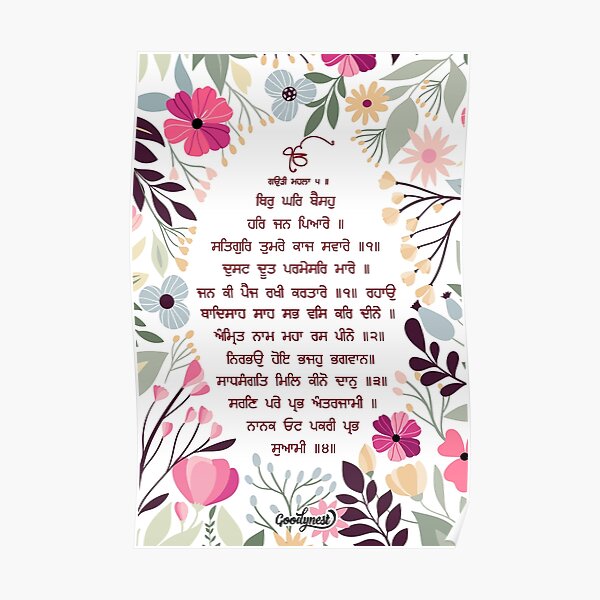 ੴ
ਗਉੜੀ ਮਹਲਾ ੫ ॥
ਥਿਰੁ ਘਰਿ ਬੈਸਹੁ
ਹਰਿ ਜਨ ਪਿਆਰੇ ॥
ਸਤਿਗੁਰਿ ਤੁਮਰੇ ਕਾਜ ਸਵਾਰੇ ॥੧॥
ਦੁਸਟ ਦੂਤ ਪਰਮੇਸਰਿ ਮਾਰੇ ॥
ਜਨ ਕੀ ਪੈਜ ਰਖੀ ਕਰਤਾਰੇ ॥੧॥ ਰਹਾਉ
ਬਾਦਿਸਾਹ ਸਾਹ ਸਭ ਵਸਿ ਕਰਿ ਦੀਨੇ ॥
ਅੰਮ੍ਰਿਤ ਨਾਮ ਮਹਾ ਰਸ ਪੀਨੇ ॥੨॥
ਨਿਰਭਉ ਹੋਇ ਭਜਹੁ ਭਗਵਾਨ॥
ਸਾਧਸੰਗਤਿ ਮਿਲਿ ਕੀਨੋ ਦਾਨੁ ॥੩॥
ਸਰਣਿ ਪਰੇ ਪ੍ਰਭ ਅੰਤਰਜਾਮੀ ॥
ਨਾਨਕ ਓਟ ਪਕਰੀ ਪ੍ਰਭ
ਸੁਆਮੀ ॥੪॥
Goodynest